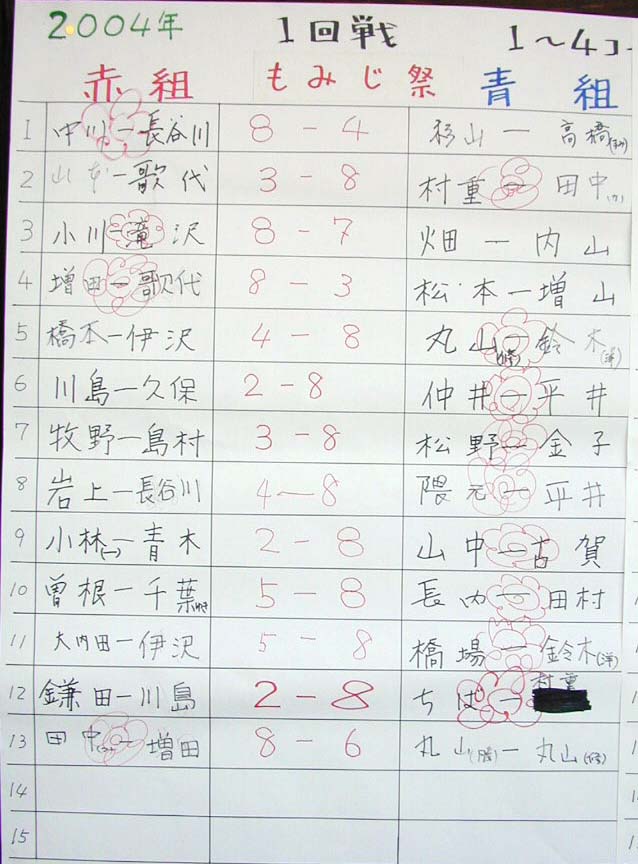 2004年 1回戦 1〜4コ
赤組 もみじ祭 青組
1 中川ー長谷川 8 - 4 杉山ー高橋
2 山本ー歌代 3 - 8 村重ー田中(カ)
3 小川ー滝沢 8 - 7 畑ー内山
4 増田ー歌代 8 - 3 松本ー増山
5 橋本ー伊沢 4 - 8 丸山ー鈴木
6 川島ー久保 2 - 8 仲井ー平井
7 牧野ー島村 3 - 8 松野ー金子
8 岩上ー長谷川 4 - 8 隈元ー平井
9 小林(一)ー青木 2 - 8 山中ー古賀
10 曽根ー千葉 5 - 8 長内ー田村
11 大内田ー伊沢 5 - 8 橋場ー鈴木(洋)
12 鎌田ー川島 2 - 8 ちばー村重
13 田中ー増田 8 - 6 丸山(勝)ー丸山
14
15